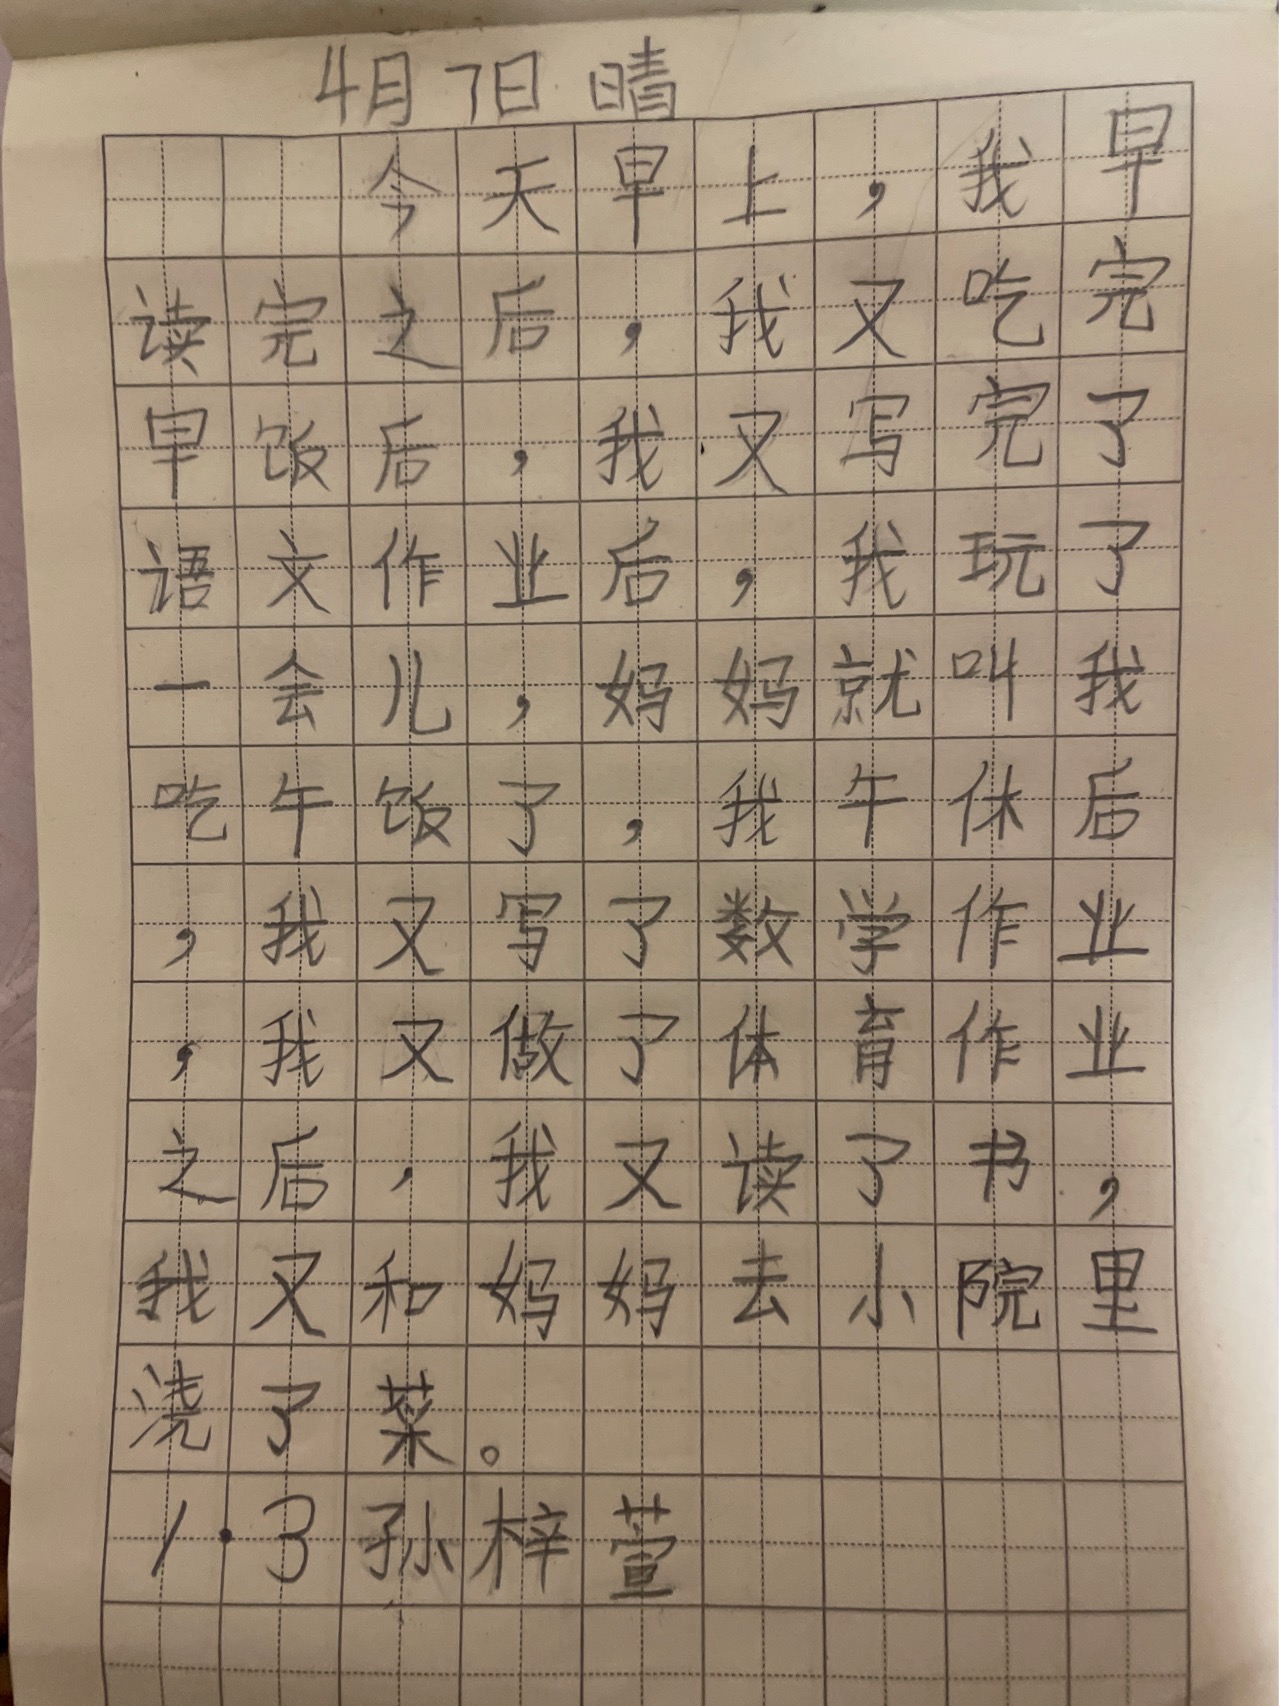 4月7日 晴
今天早上,我早
读完之后,我又吃完
早饭后,我又写完了
语文作业后,我玩了
一会儿,妈妈就叫我
吃午饭了,我午休后
,我又写了数学作业
,我又做了体育作业
之后,我又读了书,
我又和妈妈去小院里
浇了菜。
1·3孙梓萱